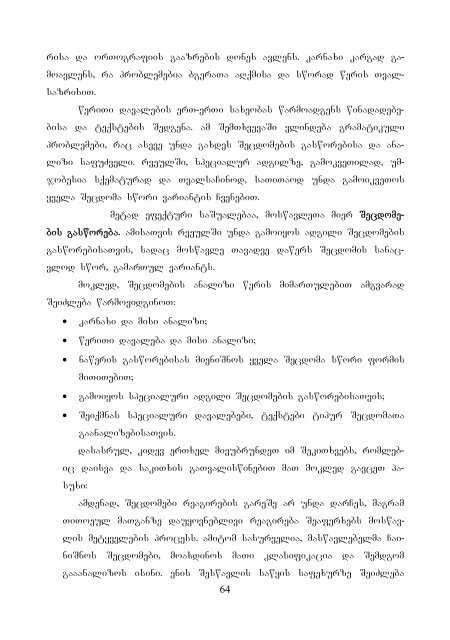 რისა და ორთოგრაფიის გააზრების დონეს ავლენს. კარნახი კარგად გა-
მოავლენს, რა პრობლემებია ბგერათა აღქმისა და სწორად წერის თვალ-
საზრისით.
წერითი დავალების ერთ-ერთი სახეობას წარმოადგენს წინადადებე-
ბისა და ტექსტების შედგენა. ამ შემთხვევაში ვლინდება გრამატიკული
პრობლემები, რაც ასევე უნდა გახდეს შეცდომების გასწორებისა და ანა-
ლიზი საფუძველი. რვეულში, სპეციალურ ადგილზე, გამოკვეთილად, უმ-
ჯობესია სქემატურად და თვალსაჩინოდ, სათითაოდ უნდა გამოიკვეთოს
ყველა შეცდომა სწორი ვარიანტის ჩვენებით.
მეტად ეფექტური საშუალებაა, მოსწავლეთა მიერ შეცდომე-
ბის გასწორება. ამისათვის რვეულში უნდა გამოიყოს ადგილი შეცდომების
გასწორებისათვის, სადაც მოსწავლე თავადვე დაწერს შეცდომის სანაც-
ვლოდ სწორ, გამართულ ვარიანტს.
მოკლედ, შეცდომების ანალიზი წერის მიმართულებით ამგვარად
შეიძლება წარმოვიდგინოთ:
• კარნახი და მისი ანალიზი;
• წერითი დავალება და მისი ანალიზი;
• ნაწერის გასწორებისას მიენიშნოს ყველა შეცდომა სწორი ფორმის
მითითებით;
• გამოიყოს სპეციალური ადგილი შეცდომების გასწორებისათვის;
• შეიქმნას სპეციალური დავალებები, ტექსტები ტიპურ შეცდომათა
გაანალიზებისათვის.
დასასრულ, კიდევ ერთხელ მივუბრუნდეთ იმ შეკითხვებს, რომლებ-
იც დაისვა და საკითხის გათვალისწინებით მათ მოკლედ გავცეთ პა-
სუხი:
ამდენად, შეცდომები რეაგირების გარეშე არ უნდა დარჩეს, მაგრამ
თითოეულ მათგანზე დაუყოვნებლივი რეაგირება შეაფერხებს მოსწავ-
ლის მეტყველების პროცესს. ამიტომ სასურველია, მასწავლებელმა ჩაი-
ნიშნოს შეცდომები, მოახდინოს მათი კლასიფიკაცია და შემდგომ
გააანალიზოს ისინი. ენის შესწავლის საწყის საფეხურზე შეიძლება
64